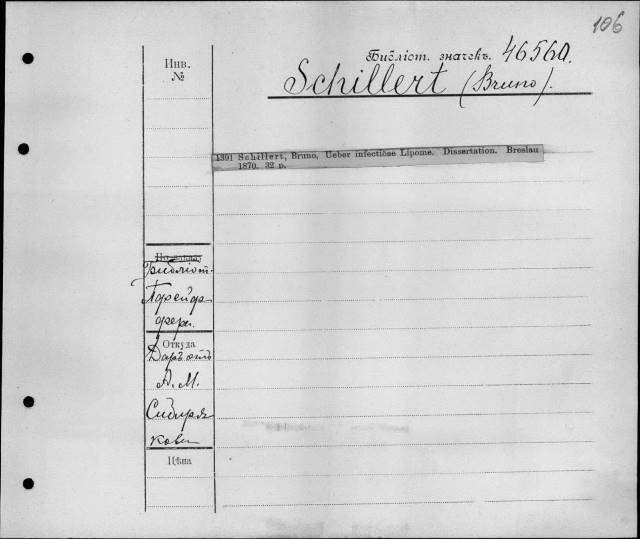 106
Библіот. значекъ. 46560.
Schillert (Bruno).
Инв.
№
1391 Schillert, Bruno, Ueber infectiöse Lipome. Dissertation. Breslau
1870. 32 p.
Библіот.
Пфейф
фери.
Откуда
Даръ отъ
А. М.
Сибиря
кова
Цѣна